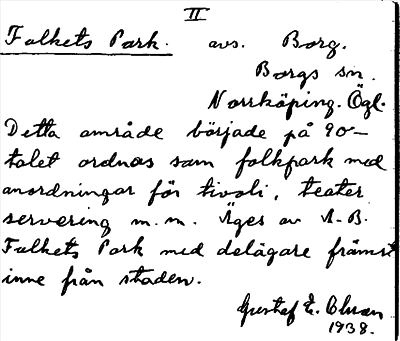 II
Folkets Park. avs. Borg.
Borgs sn.
Norrköping. Ögl.
Detta område började på 90-
talet ordnas som folkpark med
anordningar för tivoli, teater
servering m.m. Äges av A-B.
Folkets Park med delägare främst
inne från staden.
Gustaf E. Olsson
1938.